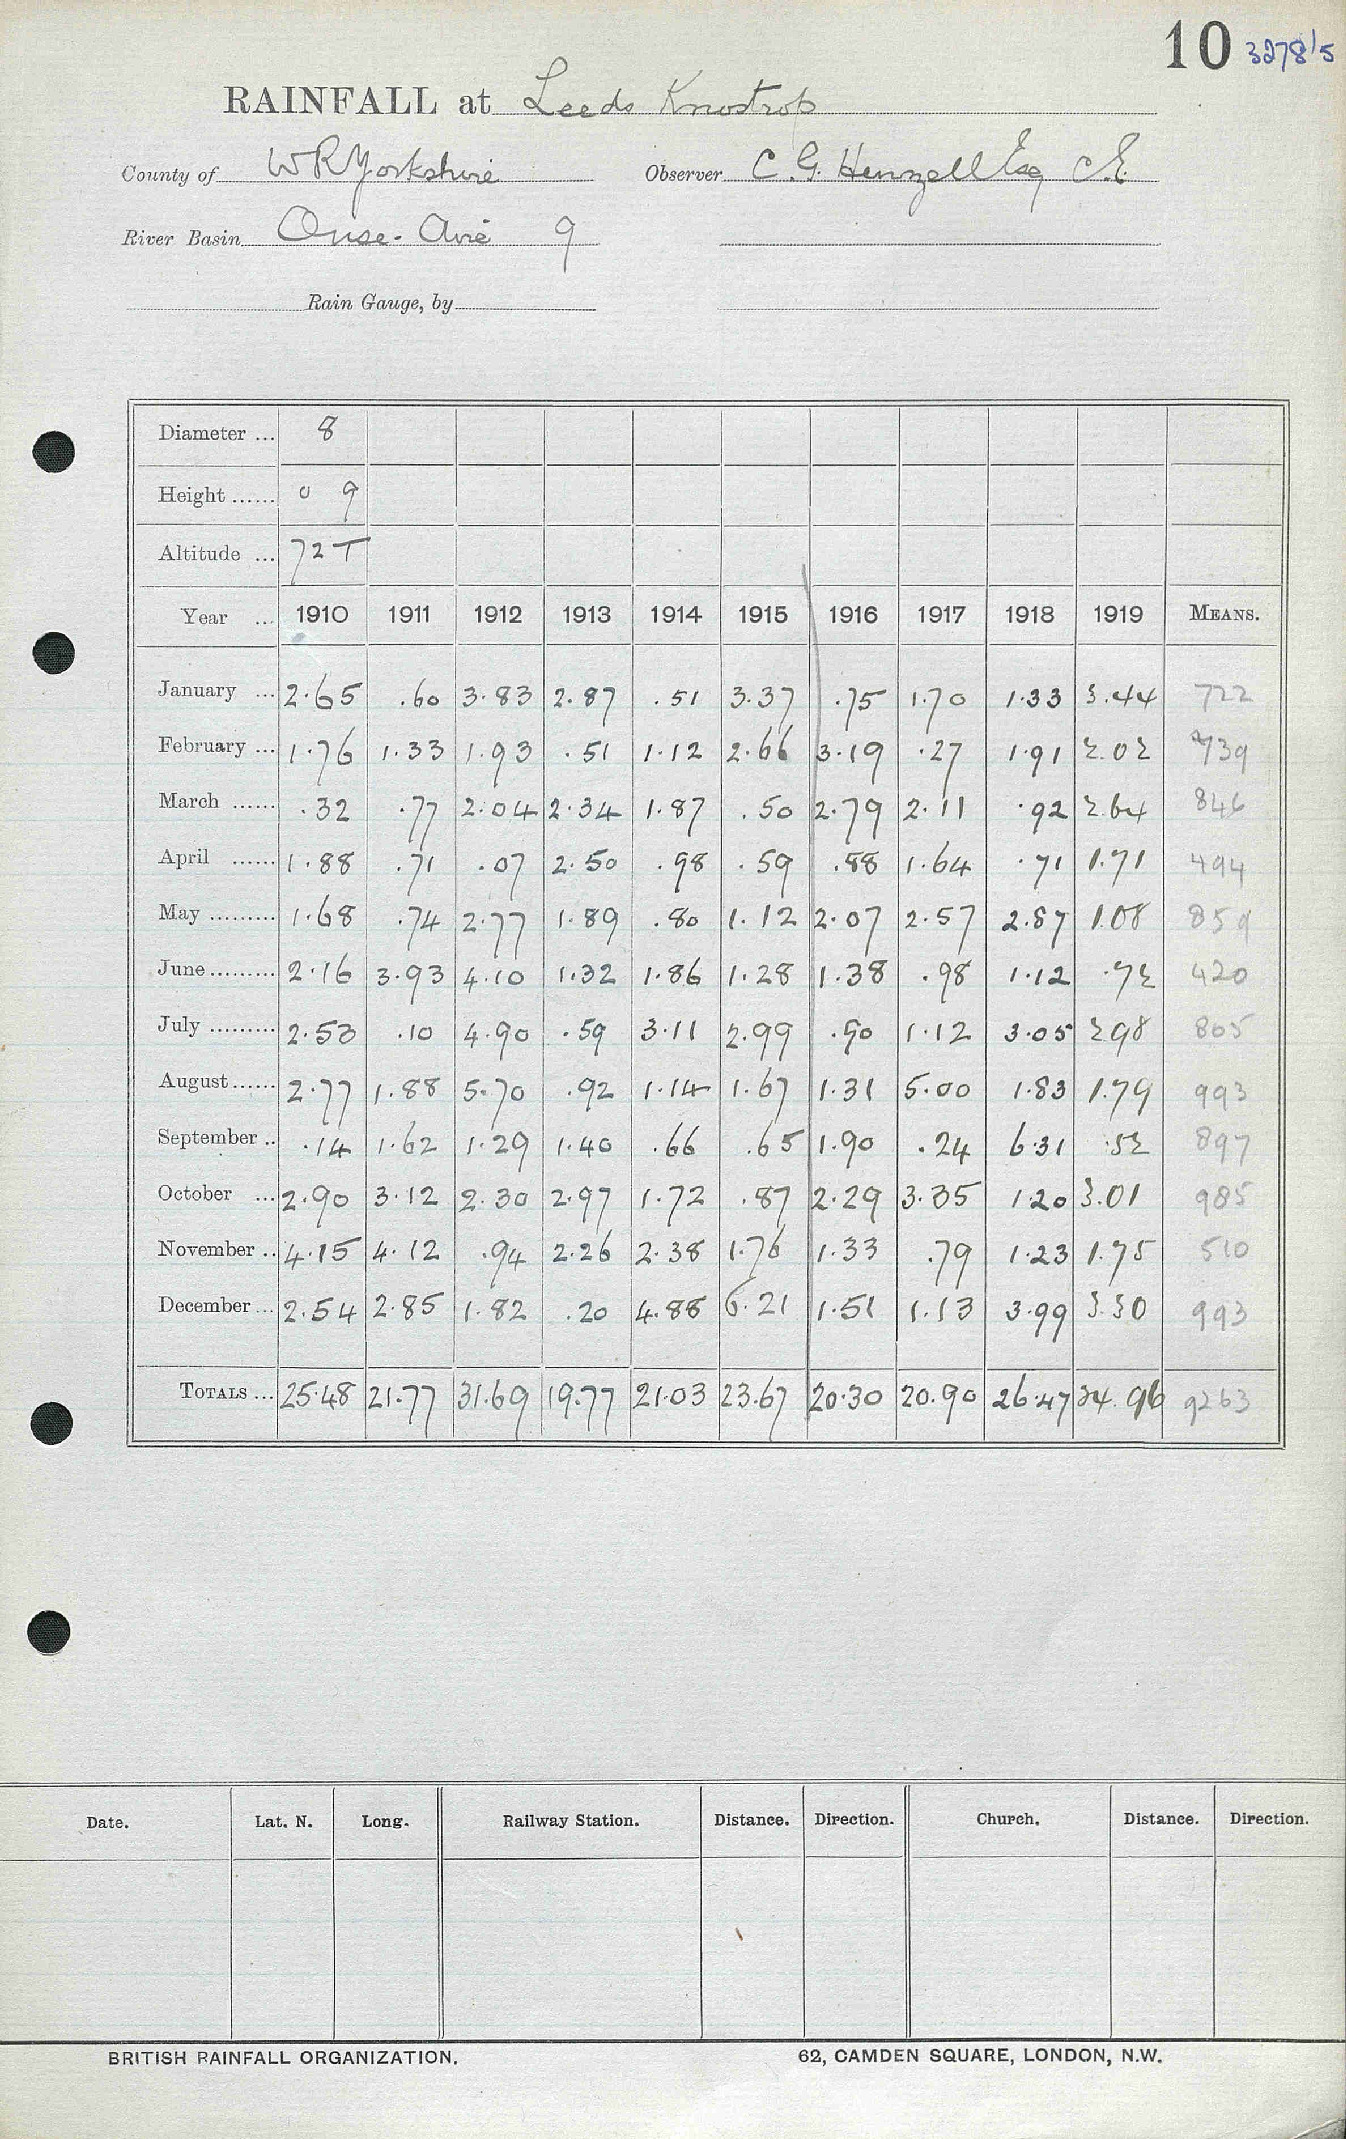 10 3278/5
RAINFALL at Leeds Knostrop
County of W R Yorkshire Observer C. G. Henzell Esq C.E.
River Basin Ouse - Aire 9
Rain Gauge, by
Diameter ... 8
Height ...... 0 9
Altitude ... 72 T
Year ... 1910 1911 1912 1913 1914 1915 1916 1917 1918 1919 MEANS.
January ... 2.65 .60 3.83 2.87 .51 3.37 .75 1.70 1.33 3.44 722
February ... 1.76 1.33 1.93 .51 1.12 2.66 3.19 .27 1.91 2.02 739
March ...... .32 .77 2.04 2.34 1.87 .50 2.79 2.11 .92 2.64 846
April ...... 1.88 .71 .07 2.50 .98 .59 .88 1.64 .71 1.71 494
May ......... 1.68 .74 2.77 1.89 .80 1.12 2.07 2.57 2.87 1.08 859
June ......... 2.16 3.93 4.10 1.32 1.86 1.28 1.38 .98 1.12 .72 420
July ......... 2.53 .10 4.90 .59 3.11 2.99 .90 1.12 3.05 2.98 805
August ...... 2.77 1.88 5.70 .92 1.14 1.67 1.31 5.00 1.83 1.79 993
September .. .14 1.62 1.29 1.40 .66 .65 1.90 .24 6.31 .52 897
October ... 2.90 3.12 2.30 2.97 1.72 .87 2.29 3.35 1.20 3.01 985
November .. 4.15 4.12 .94 2.26 2.38 1.76 1.33 .79 1.23 1.75 510
December ... 2.54 2.85 1.82 .20 4.88 6.21 1.51 1.13 3.99 3.30 993
TOTALS ... 25.48 21.77 31.69 19.77 21.03 23.67 20.30 20.90 26.47 24.96 9263
Date. Lat. N. Long. Railway Station. Distance. Direction. Church. Distance. Direction.
BRITISH RAINFALL ORGANIZATION. 62, CAMDEN SQUARE, LONDON, N.W.